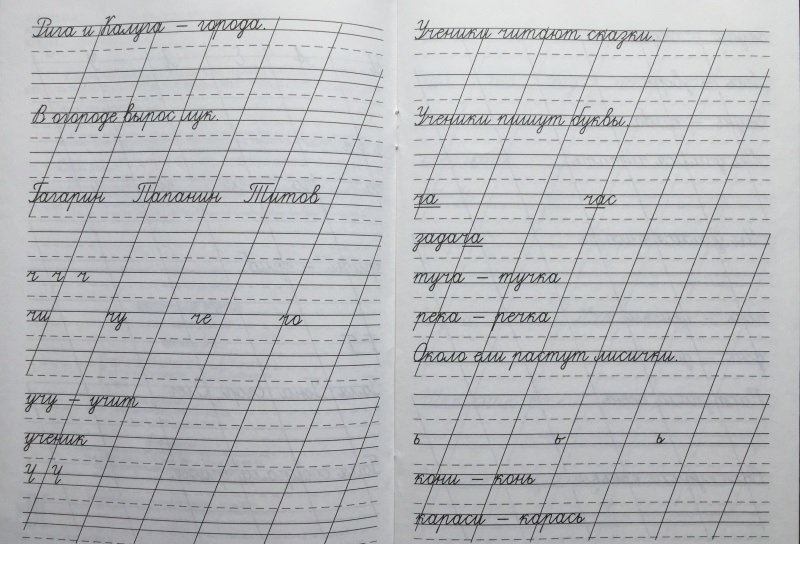 Рига и Калуга – города.
В огороде вырос лук.
Гагарин Папанин Титов
ч ч ч
чи чу че чо
учу – учит
ученик
Ч Ч
Ученики читают сказки.
Ученики пишут буквы.
ча час
задача
туча – тучка
река – речка
Около ели растут лисички.
ь ь ь
кони – конь
караси – карась